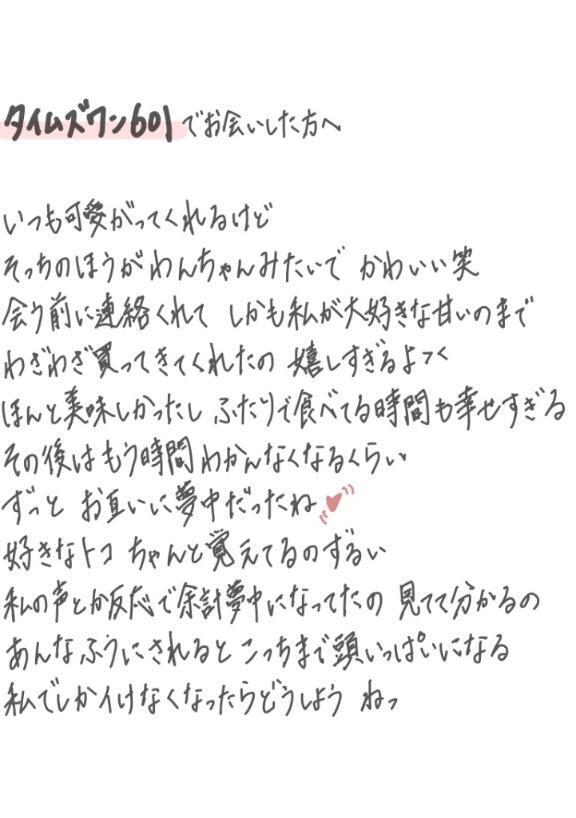 タイムズワン601でお会いした方へ
いつも可愛がってくれるけど
そっちのほうがわんちゃんみたいで かわいい笑
会う前に連絡くれて しかも私が大好きな甘いのまで
わざわざ買ってきてくれたの 嬉しすぎるよつく
ほんと美味しかったし ふたりで食べてる時間も幸せすぎる
その後はもう時間わかんなくなるくらい
ずっと お互いに夢中だったね
好きなトコ ちゃんと覚えてるのずるい
私の声とか反応で余計夢中になってたの 見てて分かるの
あんなふうにされるとこっちまで頭いっぱいになる
私でしかイけなくなったらどうしよう ねっ